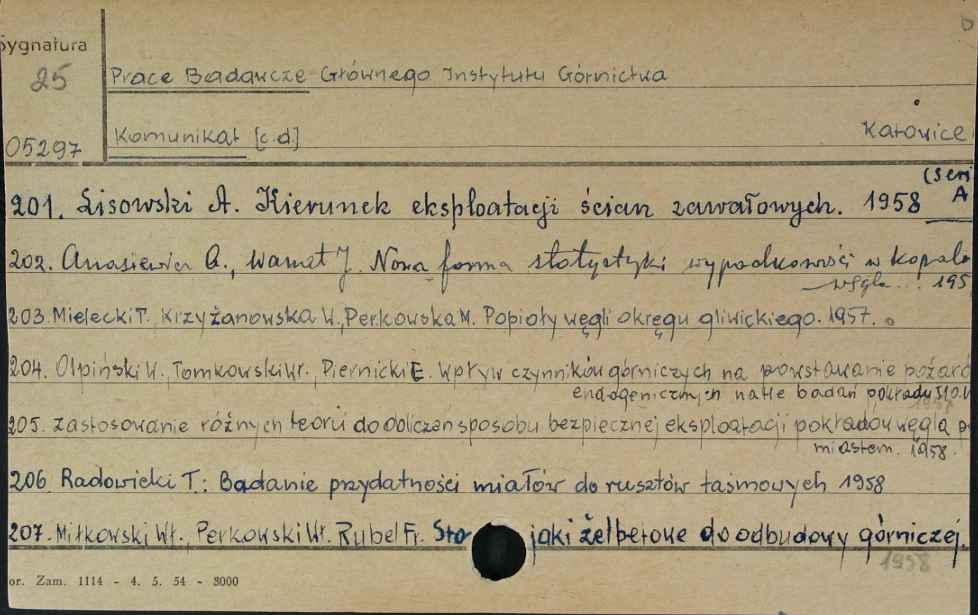 Sygnatura
25
Prace Badawcze Głównego Instytutu Górnictwa
05297
Komunikat [c.d]
Katowice
(Seri
A
201. Lisowski A. Kierunek eksploatacji ścian zawałowych. 1958
202. Anasiewicz A., Wamat J. Nowa forma statystyki wypadkowości w kopaln
węgla... 195
203. Mielecki T., Krzyżanowska W., Perkowska M. Popioły węgli okręgu gliwickiego. 1957.
204. Olpiński W., Tomkowski Wł., Piernicki E. Wpływ czynników górniczych na powstawanie pożaró
endogenicznych na tle badań pokładu 510. W
1958
205. Zastosowanie różnych teorii do obliczeń sposobu bezpiecznej eksploatacji pokładów węgla p
miastem. 1958.
206. Radowicki T.: Badanie przydatności miałów do rusztów taśmowych 1958
207. Miłkowski Wł., Perkowski Wł. Rubel Fr. Sto jaki żelbetowe do odbudowy górniczej.
1958
or. Zam. 1114 - 4. 5. 54 - 3000